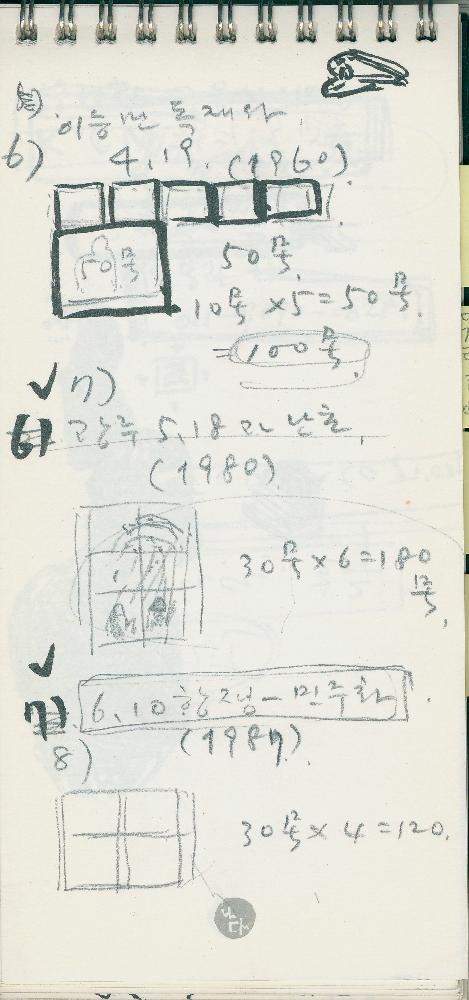 이승만 독재와
6) 4.19. (1960)
50号
50号
10号 × 5 = 50号.
= 100号.
✓ 7)
6) 광주 5.18과 난혼
(1980)
30号 × 6 = 180
号.
✓
7) 6.10 항쟁 - 민주화
8) (1987).
30号 × 4 = 120.
나다